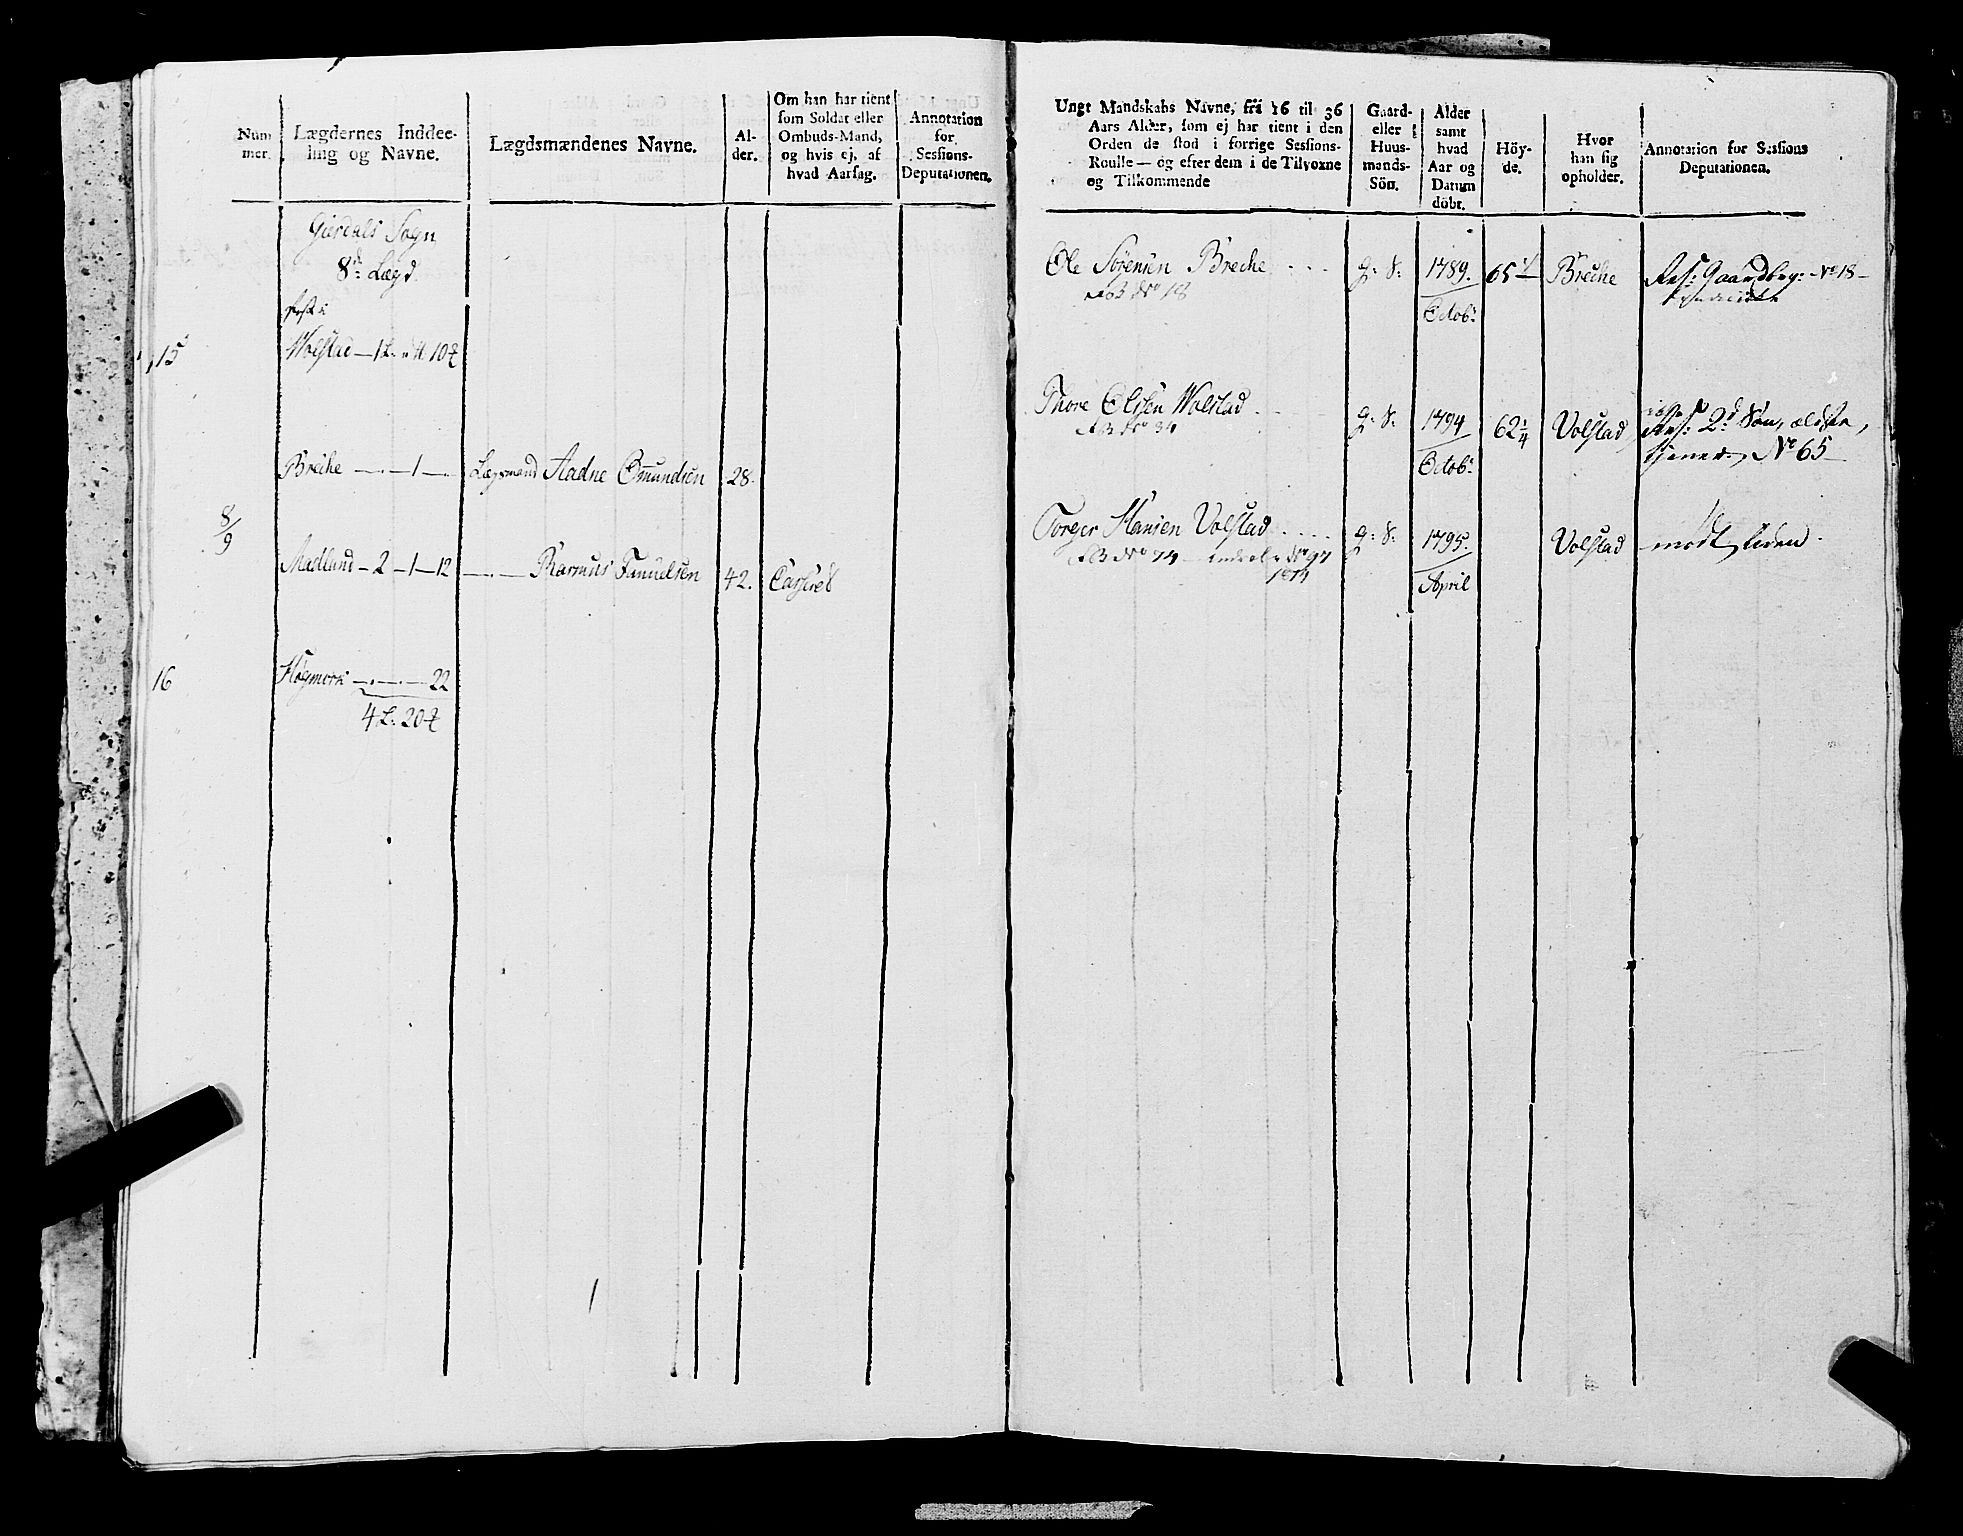 Num
mer.
Lægdernes Inddee-
ling og Navne.
Lægdsmændenes Navne.
Al-
der.
Om han har tient
som Soldat eller
Ombuds-Mand,
og hvis ej, af
hvad Aarsag.
Annotation
for
Sessions-
Deputationen.
Giesdals Sogn
8de Lægd
15
Wolstad — 1 L: " tt 10 
Breche — 1 — Lægsmand Aadne Omundsen 28.
8/9
Madland — 2 — 1 — 12 — Rasmus Samuelsen 42. Casseret
16
Høgmork — 22
4 L: 20
Ungt Mandskabs Navne, fra 16 til 36
Aars Alder, som ej har tient i den
Orden de stod i forrige Sessions-
Roulle — og efter dem i de Tilvoxne
og Tilkommende
Gaard-
eller
Huus-
mands-
Sön.
Alder
samt
hvad
Aar og
Datum
döbt.
Höy-
de.
Hvor
han sig
opholder.
Annotation for Sessions
Deputationen.
Ole Sørensen Breche . . . g: S: 1789. 65 Breche Res: Gaardbrg: No 18
RB No 18
Octobr
Thore Olsen Wolstad g: S: 1794 62 1/4 Volstad Res: 2d Søn, ældste,
RB No 34
Octobr tjener No 65
Torger Hansen Volstad . . . . g: S: 1795. Volstad mødt, liden.
RB No 74 No 97
1814
April